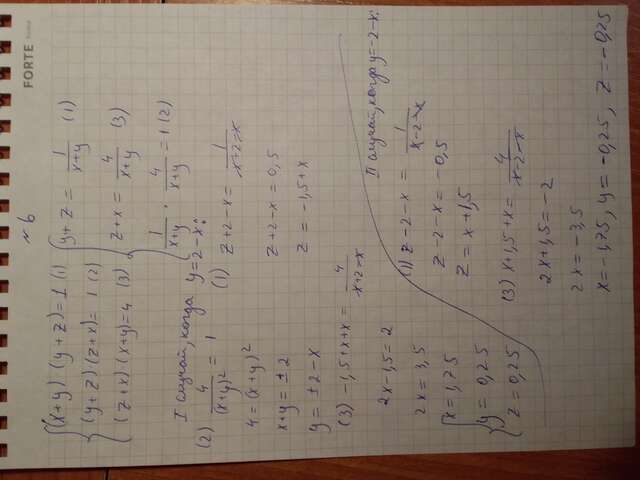 №6
{(x+y)(y+z)=1 (1)
(y+z)(z+x)=1 (2)
(z+x)(x+y)=4 (3)
{y+z = 1/(x+y) (1)
z+x = 4/(x+y) (3)
1/(x+y) · 4/(x+y) = 1 (2)
I случай, когда y=2-x:
(2) 4/(x+y)² = 1
4=(x+y)²
x+y=±2
y=±2-x
(1) z+2-x = 1/(x+2-x)
z+2-x=0,5
z=-1,5+x
(3) -1,5+x+x = 4/(x+2-x)
2x-1,5=2
2x=3,5
{x=1,75
y=0,25
z=0,25
II случай, когда y=-2-x:
(1) z-2-x = 1/(x-2-x)
z-2-x=-0,5
z=x+1,5
(3) x+1,5+x = 4/(x-2-x)
2x+1,5=-2
2x=-3,5
x=-1,75, y=-0,25, z=-0,25
FORTE